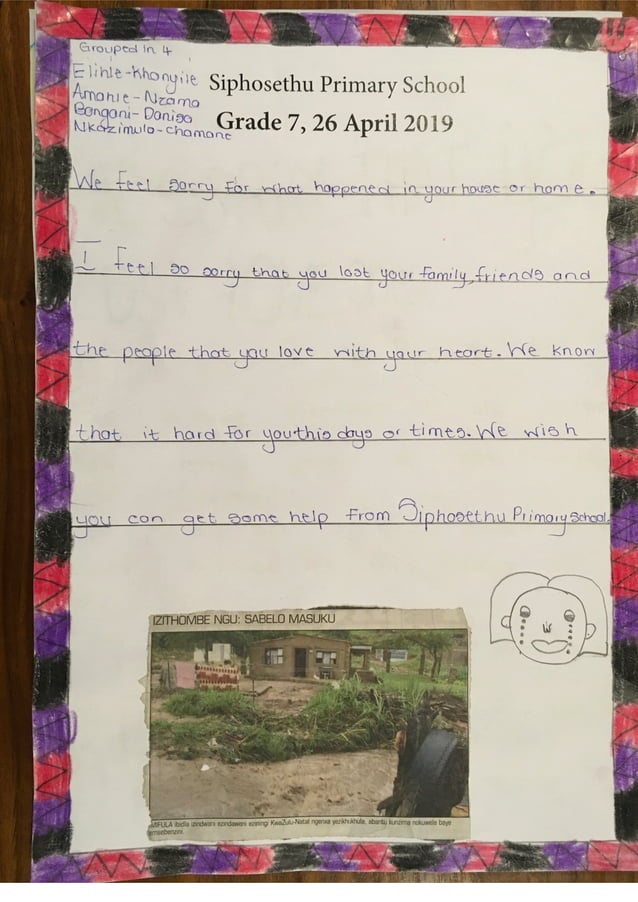 Grouped in 4
Elihle-Khanyile
Amahle-Nzama
Bongani-Danisa
Nkazimulo-Chamane
Siphosethu Primary School
Grade 7, 26 April 2019
We feel sorry for what happened in your house or home.
I feel so sorry that you lost your family, friends and
the people that you love with your heart. We know
that it hard for you this days or times. We wish
you can get some help from Siphosethu Primary School.
IZITHOMBE NGU: SABELO MASUKU
IMIFULA ibidla izindwani ezindaweni eziningi KwaZulu-Natal ngenxa yezikhukhula, abantu kunzima nokuwela baye
emsebenzini.